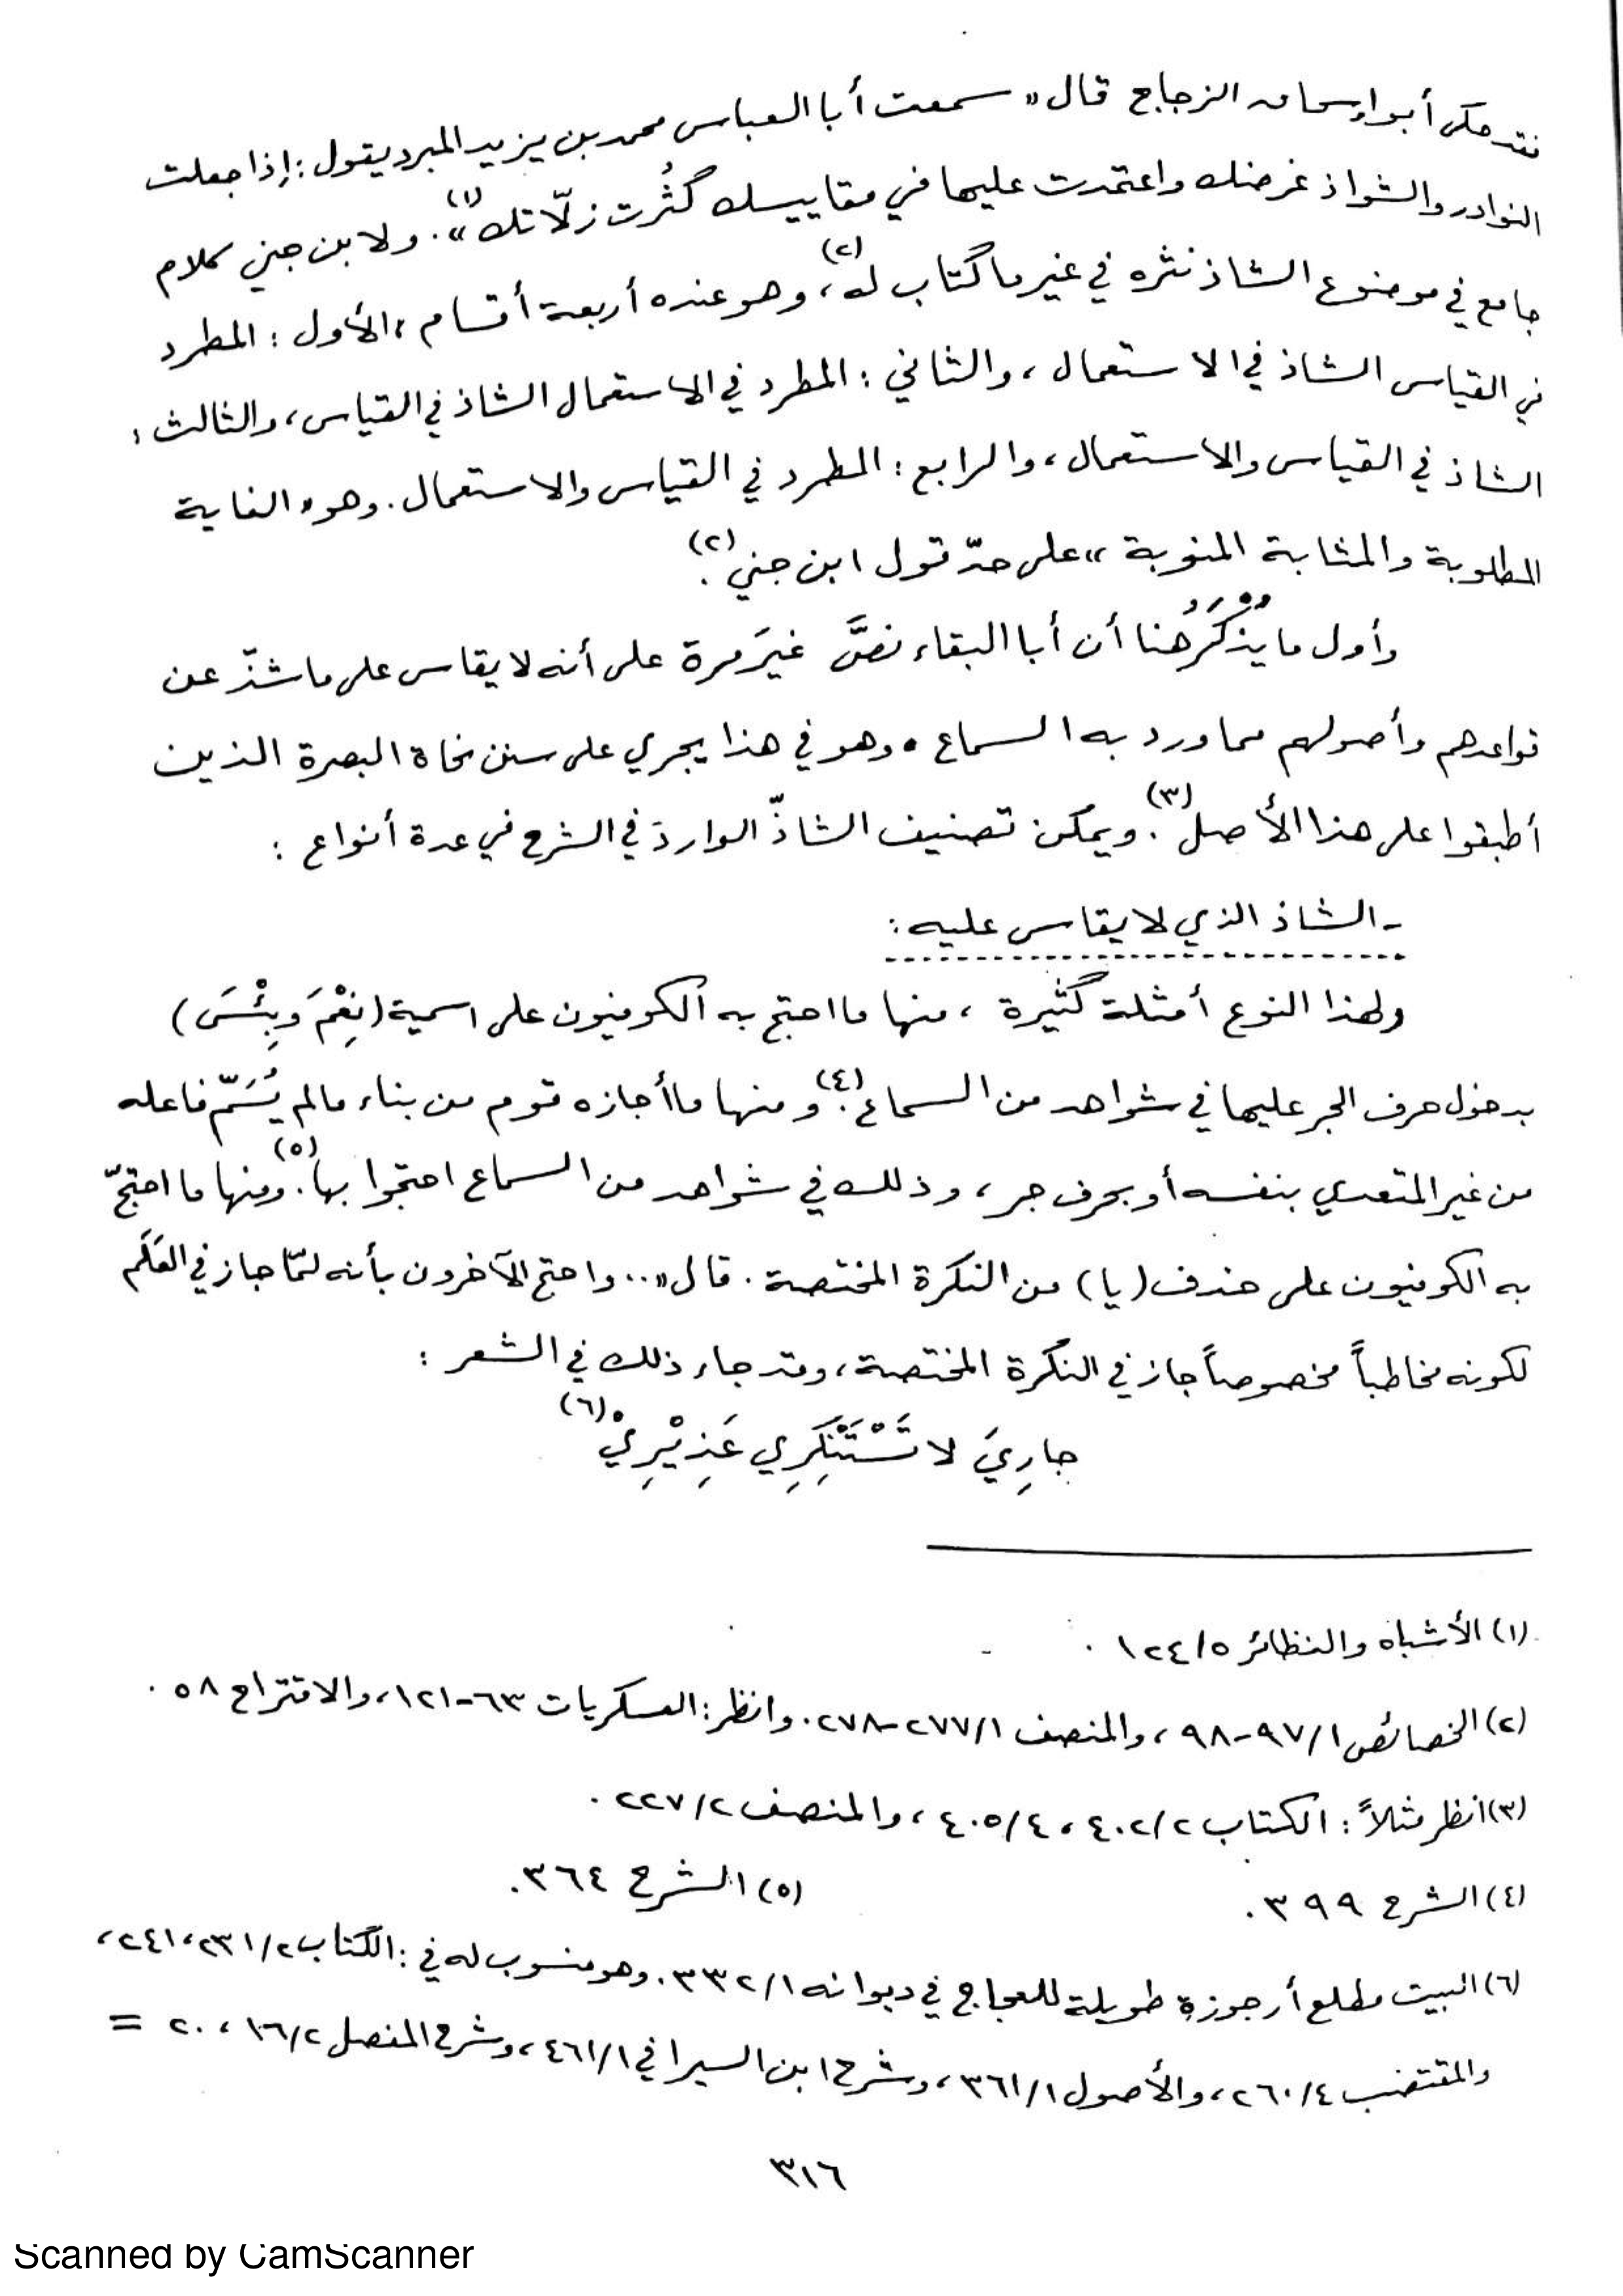 فقد حكى أبو إسحاق الزجاج قال «سمعت أبا العباس محمد بن يزيد المبرد يقول: إذا جعلت
النوادر والشواذ غرضك واعتمدت عليها في مقاييسك كثُرت زلّاتك»(١). ولابن جني كلام
جامع في موضوع الشاذ نثره في غير ما كتاب له(٢)، وهو عنده أربعة أقسام، الأول: المطرد
في القياس الشاذ في الاستعمال، والثاني: المطرد في الاستعمال الشاذ في القياس، والثالث:
الشاذ في القياس والاستعمال، والرابع: المطرد في القياس والاستعمال. وهو «الغاية
المطلوبة والمثابة المنوبة» على حدّ قول ابن جني(٢).
وأول ما يُذْكَرُ هنا أن أبا البقاء نصَّ غيَر مرة على أنه لا يقاس على ما شذّ عن
قواعدهم وأصولهم مما ورد به السماع. وهو في هذا يجري على سنن نحاة البصرة الذين
أطبقوا على هذا الأصل(٣). ويمكن تصنيف الشاذّ الوارد في الشرح في عدة أنواع:
- الشاذ الذي لا يقاس عليه:
ولهذا النوع أمثلة كثيرة، منها ما احتج به الكوفيون على اسمية (نِعْمَ وَبِئْسَ)
بدخول حرف الجر عليها في شواهد من السماع(٤). ومنها ما أجازه قوم من بناء ما لم يُسَمّ فاعله
من غير المتعدي بنفسه أو بحرف جر، وذلك في شواهد من السماع احتجوا بها(٥). ومنها ما احتجّ
به الكوفيون على حذف (يا) من النكرة المختصة. قال «.. واحتج الآخرون بأنه لمّا جاز في العَلَم
لكونه مخاطباً مخصوصاً جاز في النكرة المختصة، وقد جاء ذلك في الشعر:
جارِيَ لا تَسْتَنْكِرِي عَذِيْرِيْ(٦)
(١) الأشباه والنظائر ١٢٤/٥.
(٢) الخصائص ٩٧/١-٩٨، والمنصف ٢٧٧/١-٢٧٨. وانظر: العسكريات ٦٣-١٢١، والاقتراح ٥٨.
(٣) انظر مثلاً: الكتاب ٤٠٢/٢، ٤٠٥/٤، والمنصف ٢٢٧/٢.
(٤) الشرح ٣٩٩. (٥) الشرح ٣٦٤.
(٦) البيت مطلع أرجوزة طويلة للعجاج في ديوانه ٣٣٢/١. وهو منسوب له في: الكتاب ٢٣١/٢، ٢٤١،
والمقتضب ٢٦٠/٤، والأصول ٣٦١/١، وشرح ابن السيرافي ٤٦١/١، وشرح المفصل ١٦/٢، ٢٠ =
٣١٦
Scanned by CamScanner